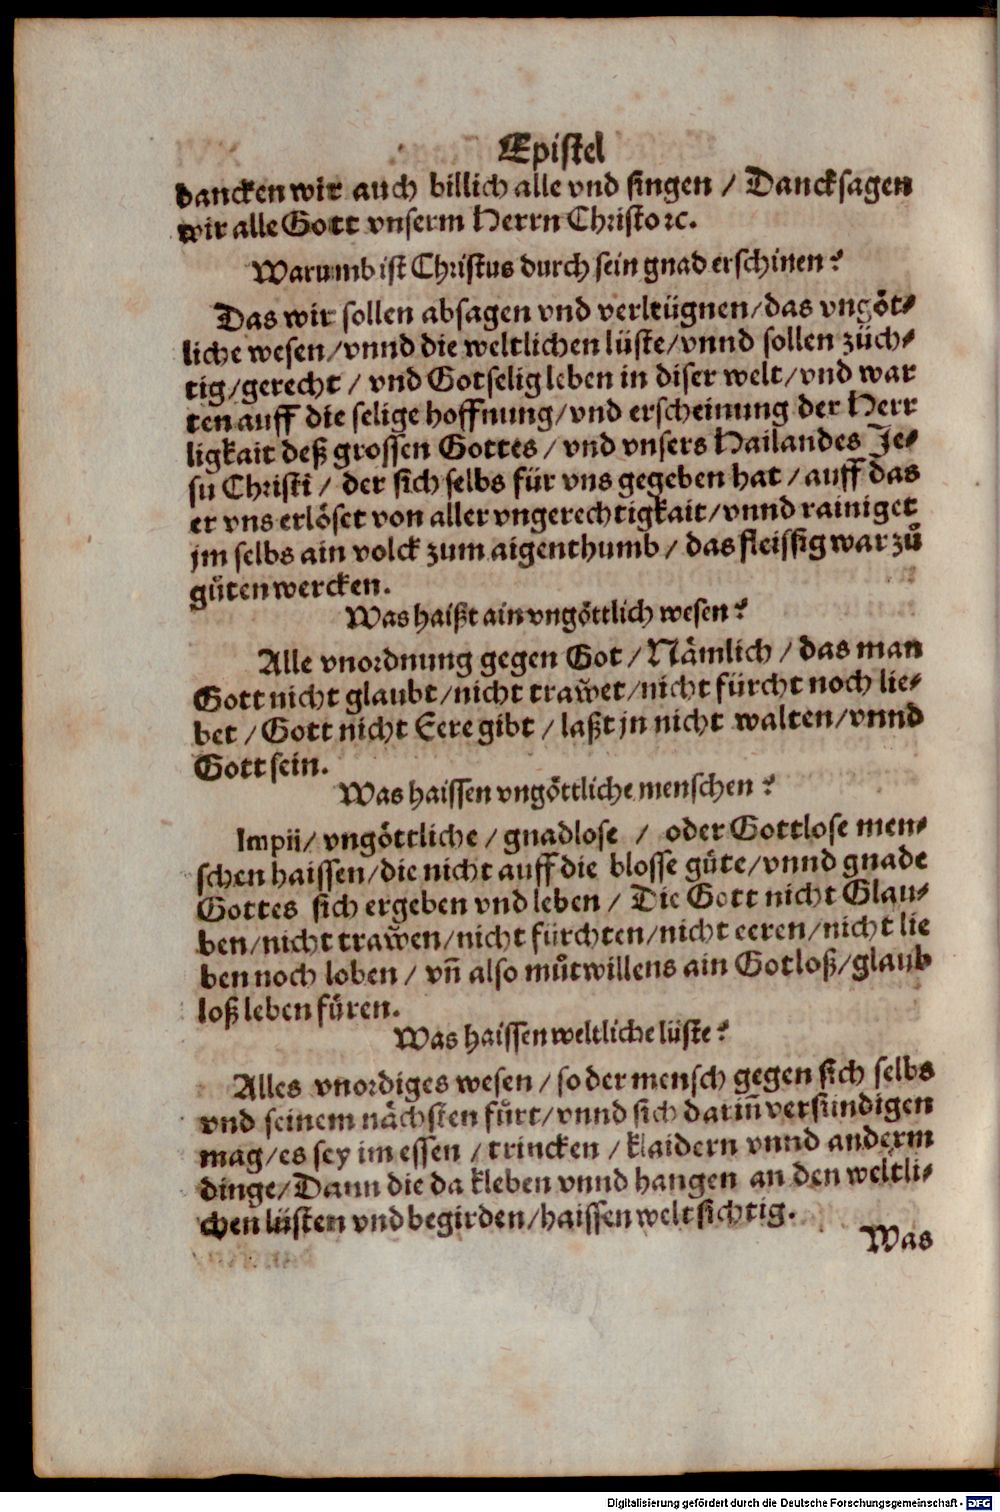 Epistel
dancken wir auch billich alle vnd singen / Dancksagen
wir alle Gott vnserm Herrn Christo ꝛc.
Warumb ist Christus durch sein gnad erschinen?
Das wir sollen absagen vnd verleügnen/das vngöt-
liche wesen/vnnd die weltlichen lüste/vnnd sollen züch-
tig/gerecht / vnd Gotselig leben in diser welt/vnd war
ten auff die selige hoffnung/vnd erscheinung der Herr
ligkait deß grossen Gottes / vnd vnsers Hailandes Je-
su Christi / der sich selbs für vns gegeben hat / auff das
er vns erlöset von aller vngerechtigkait/vnnd rainiget
jm selbs ain volck zum aigenthumb / das fleissig war zů
gůten wercken.
Was haißt ain vngöttlich wesen?
Alle vnordnung gegen Got / Nämlich / das man
Gott nicht glaubt/nicht trawet/nicht fürcht noch lie-
bet / Gott nicht Eere gibt / laßt jn nicht walten/vnnd
Gott sein.
Was haissen vngöttliche menschen?
Impii/ vngöttliche / gnadlose / oder Gottlose men-
schen haissen/die nicht auff die blosse güte/vnnd gnade
Gottes sich ergeben vnd leben / Die Gott nicht Glau-
ben/nicht trawen/nicht fürchten/nicht eeren/nicht lie
ben noch loben / vn̄ also můtwillens ain Gotloß/glaub
loß leben füren.
Was haissen weltliche lüste?
Alles vnordiges wesen / so der mensch gegen sich selbs
vnd seinem nächsten fürt/vnnd sich darin̄ versündigen
mag/es sey im essen / trincken / klaidern vnnd anderm
dinge/Dann die da kleben vnnd hangen an den weltli-
chen lüsten vnd begirden/haissen weltsichtig.
Was
Digitalisierung gefördert durch die Deutsche Forschungsgemeinschaft - DFG